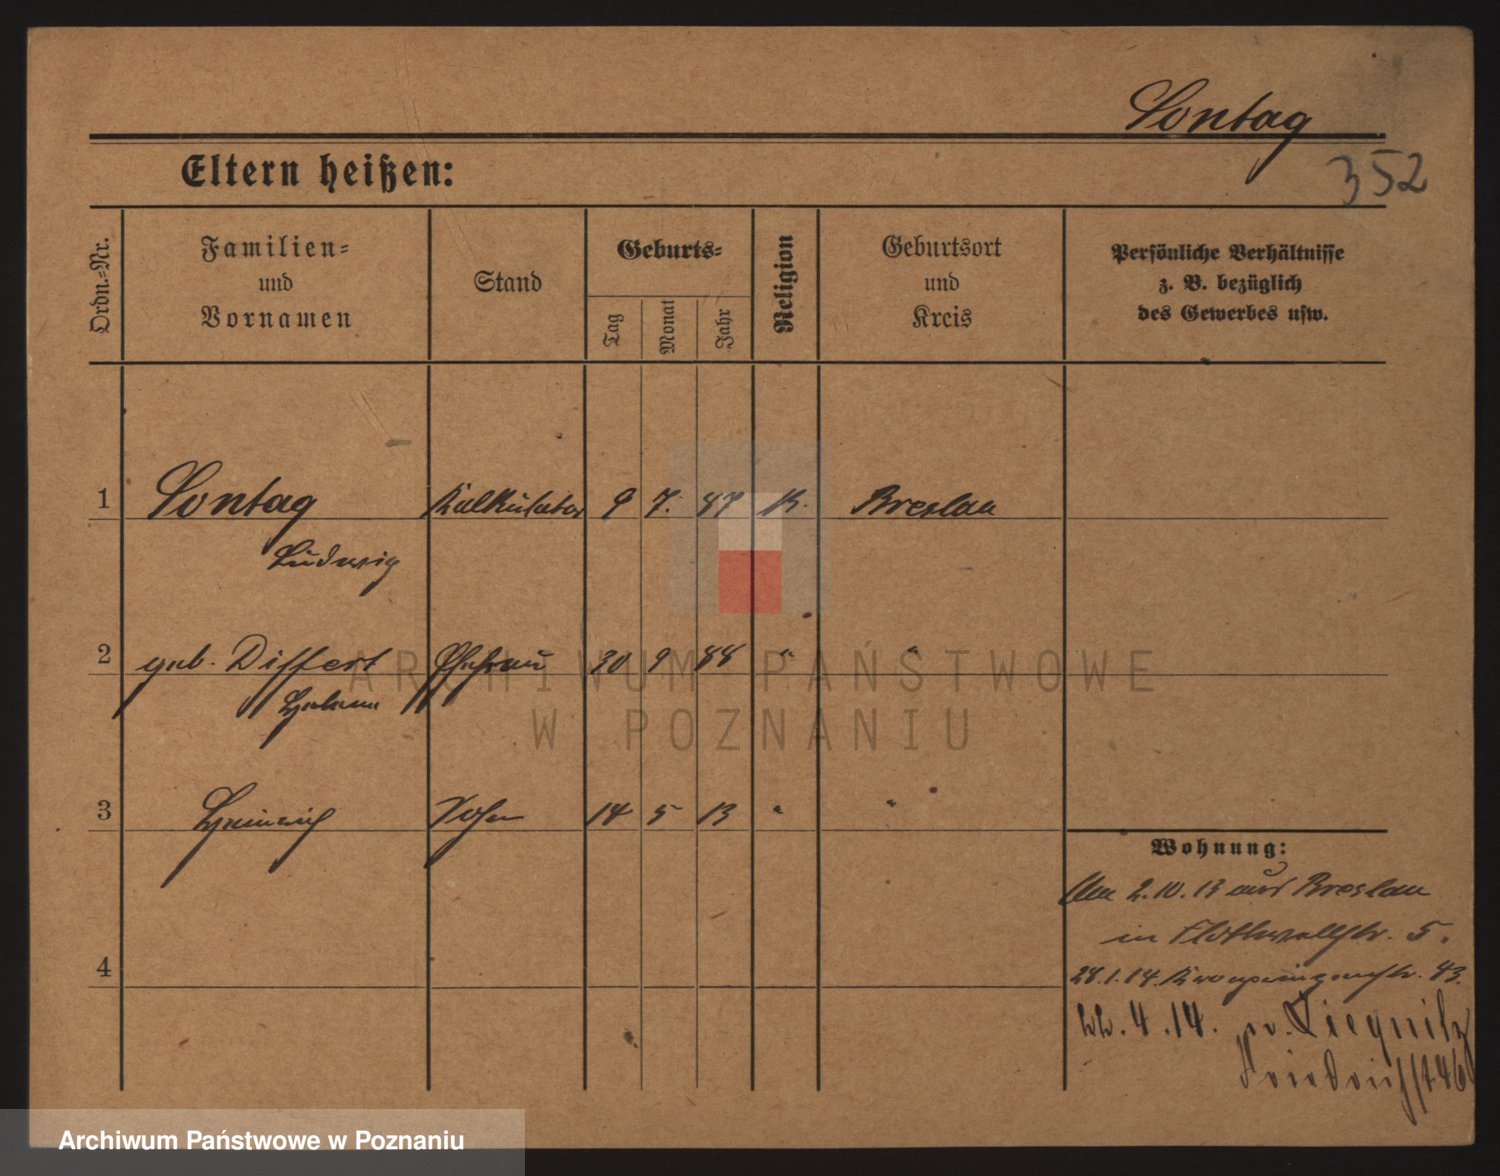 Sontag
352
Eltern heißen:
Ordn.-Nr.
Familien-
und
Vornamen
Stand
Geburts-
Tag
Monat
Jahr
Religion
Geburtsort
und
Kreis
Persönliche Verhältnisse
z. B. bezüglich
des Gewerbes usw.
1 Sontag Kalkulator 9 7. 87 K. Breslau
Ludwig
2 geb. Differt Ehefrau 30 9 88 " "
3 Heinrich Sohn 14 5 13 " "
Wohnung:
Am 2.10.13 aus Breslau
in Flottwellstr. 5.
4
28.1.14. Kronprinzenstr. 83.
22.4.14. n. Liegnitz
Friedrichstr 46
ARCHIWUM PAŃSTWOWE
W POZNANIU
Archiwum Państwowe w Poznaniu